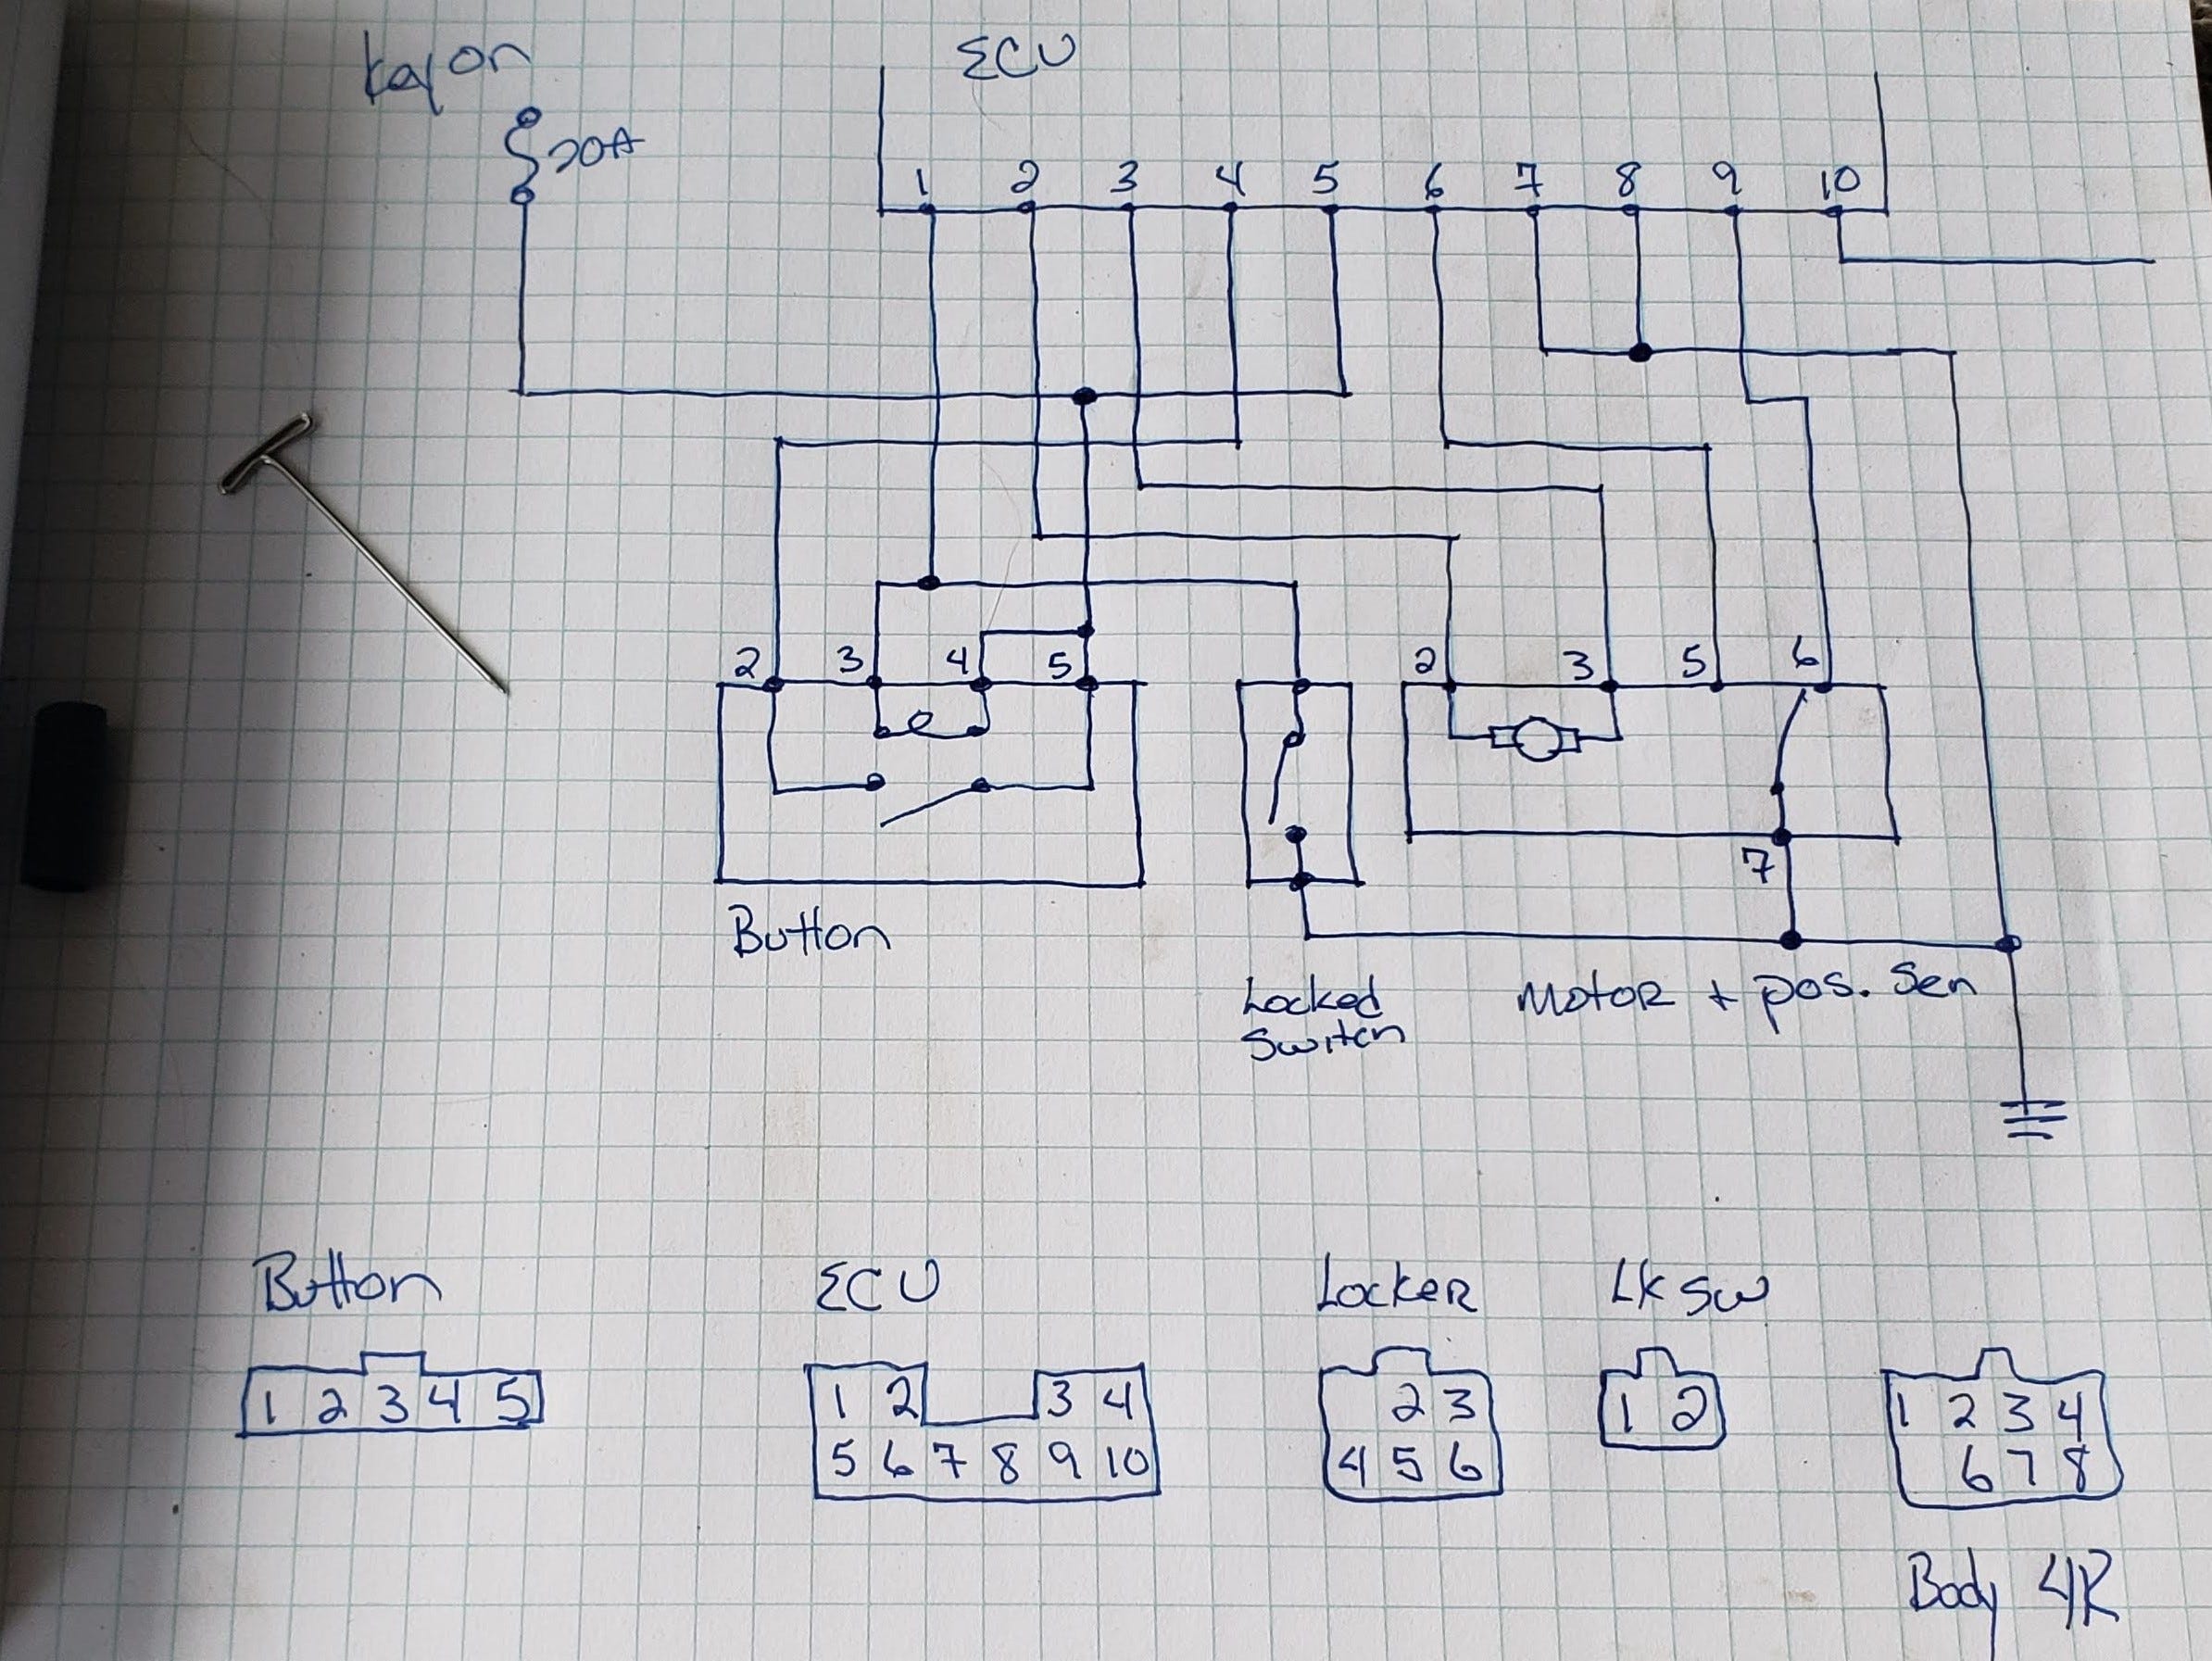 Key On
ECU
20A
1 2 3 4 5 6 7 8 9 10
2 3 4 5
2 3 5 6
7
Button
Locked
Switch
Motor + pos. Sen
Button
ECU
Locker
Lk SW
1 2 3 4 5
1 2 3 4
5 6 7 8 9 10
2 3
4 5 6
1 2
1 2 3 4
6 7 8
Body 4R